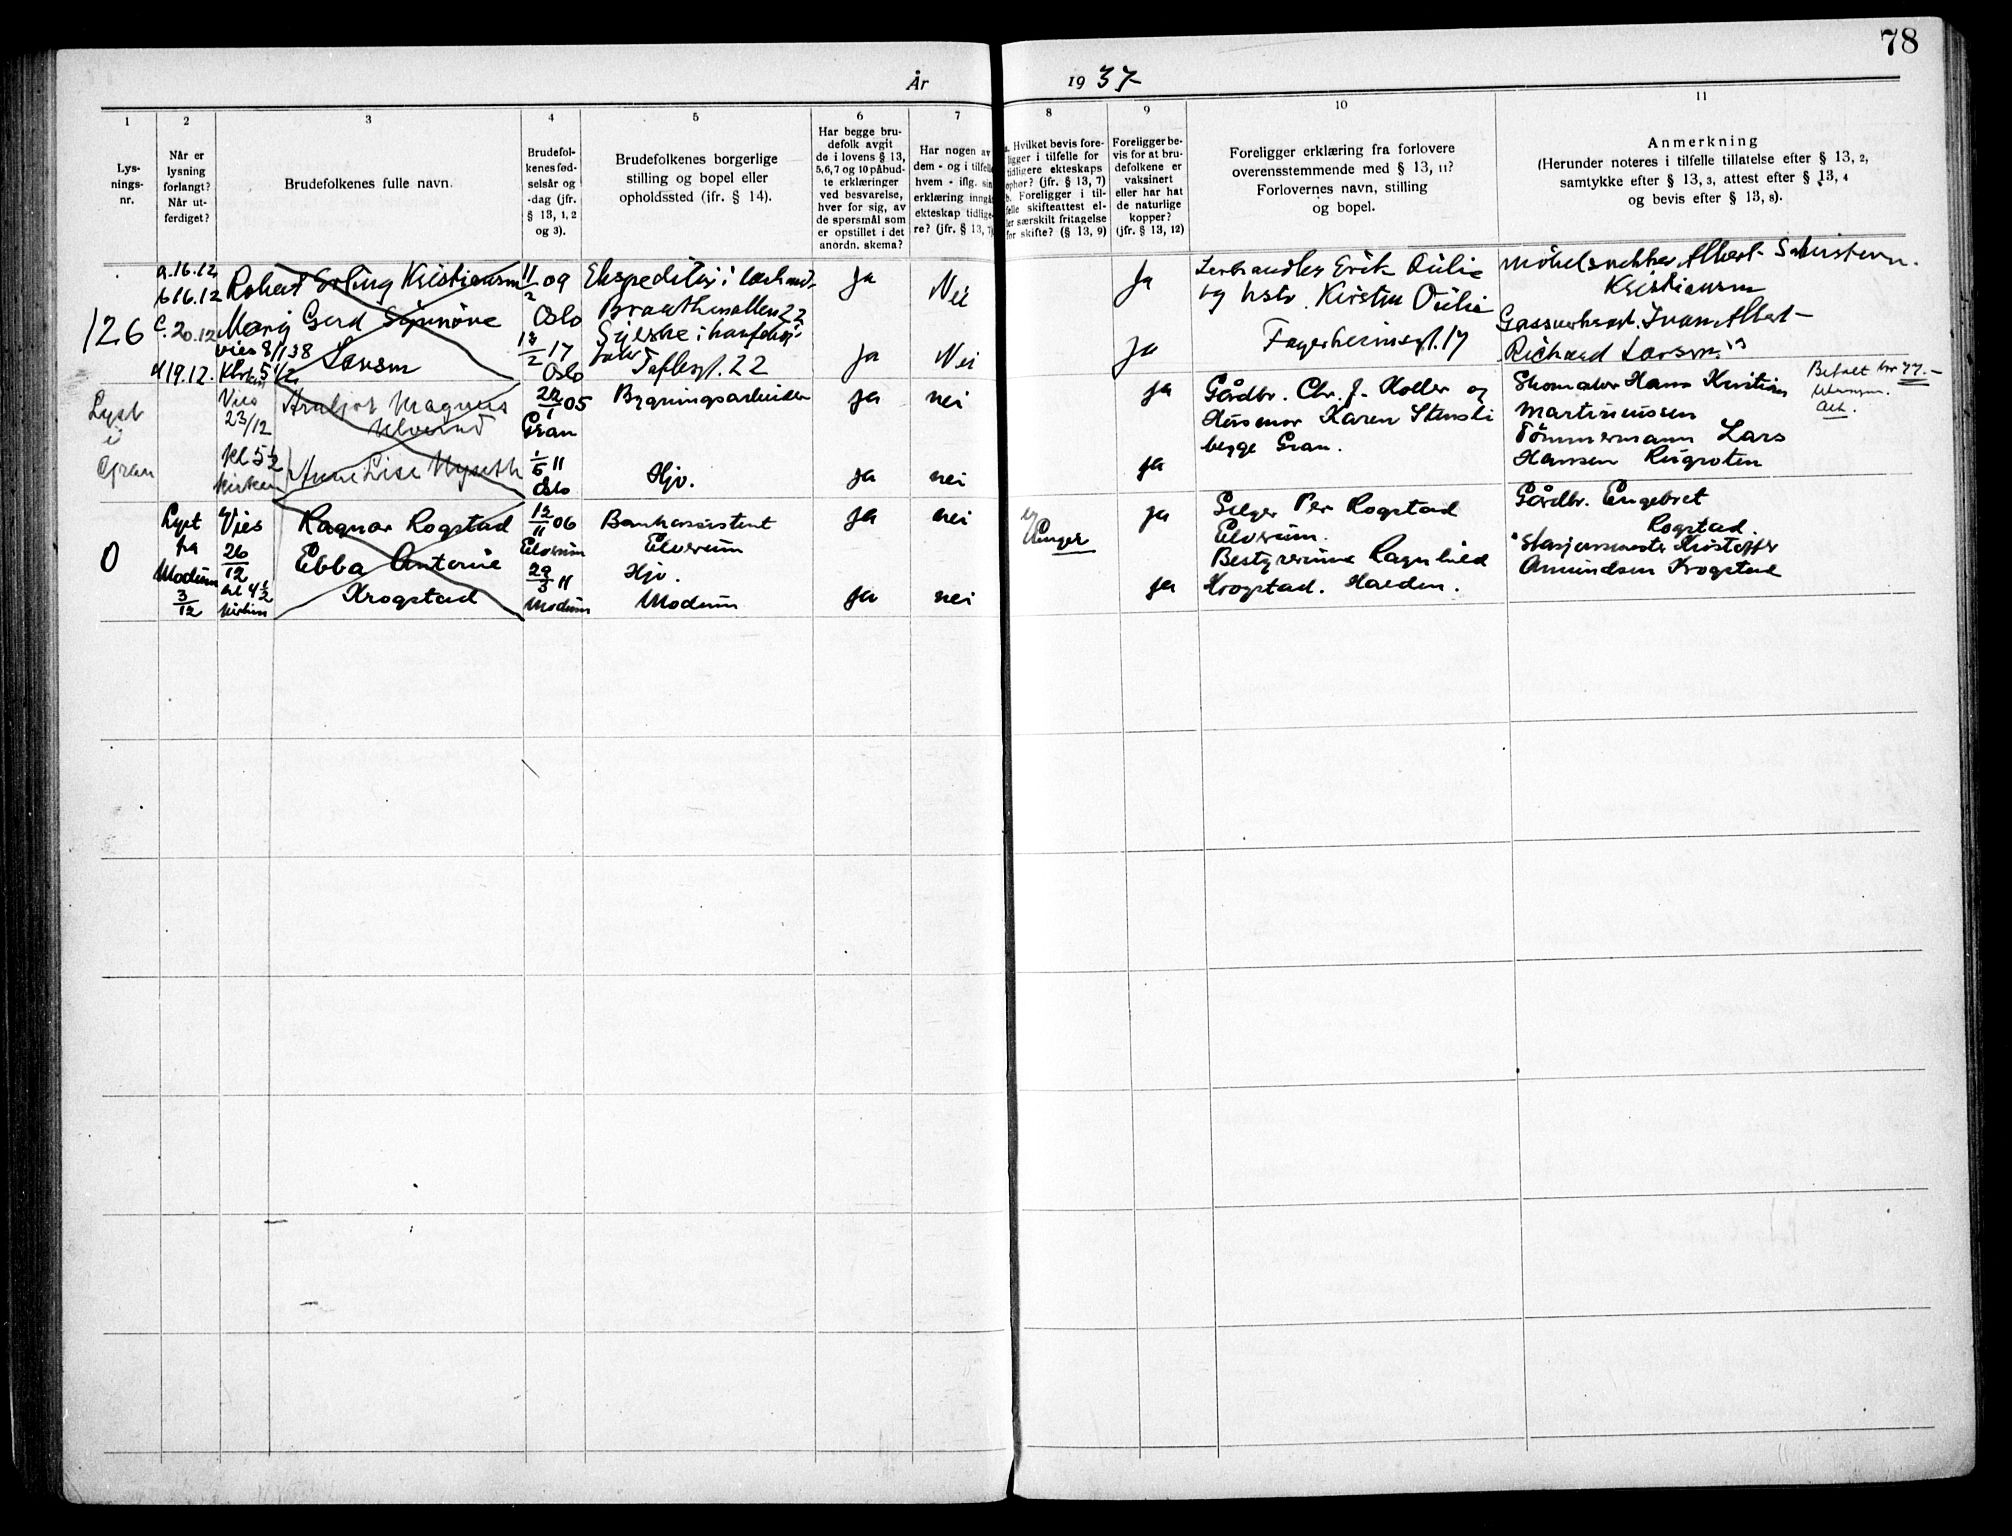 78
År 1937
1
2
3
4
5
6
7
8
9
10
11
Lys-
nings-
nr.
Når er
lysning
forlangt?
Når ut-
ferdiget?
Brudefolkenes fulle navn.
Brudefol-
kenes fød-
selsår og
-dag (jfr.
§ 13, 1, 2
og 3).
Brudefolkenes borgerlige
stilling og bopel eller
opholdssted (jfr. § 14).
Har begge bru-
defolk avgit
de i lovens § 13,
5, 6, 7 og 10 påbud-
te erklæringer
ved besvarelse,
hver for sig, av
de spørsmål som
er opstillet i det
anordn. skema?
Har nogen av
dem - og i tilfelle
hvem - iflg. sin
erklæring inngått
ekteskap tidlige-
re? (jfr. § 13, 7)
a. Hvilket bevis fore-
ligger i tilfelle for
tidligere ekteskaps
ophør? (jfr. § 13, 7)
b. Foreligger i til-
felle skifteattest el-
ler særskilt fritagelse
for skifte? (§ 13, 9)
Foreligger be-
vis for at bru-
defolkene er
vaksinert
eller har hat
de naturlige
kopper?
(jfr. § 13, 12)
Foreligger erklæring fra forlovere
overensstemmende med § 13, 11?
Forlovernes navn, stilling
og bopel.
Anmerkning
(Herunder noteres i tilfelle tillatelse efter § 13, 2,
samtykke efter § 13, 3, attest efter § 13, 4
og bevis efter § 13, 8).
126
a. 16.12
b 16.12
c. 20.12
d 19.12.
vies 8/1 38
Kl 5 1/2
Robert Erling Kristiansen
Marij Gerd Synnöve
Larsen
11/2 09
Oslo
17
2
Oslo
Ekspeditör i
Braathenalleen 22
Syerske i
22
Ja Nei
Ja Nei
Ja
Ja
Erik Oulie
og hstr. Kirsten Oulie
Fagerheimsgt. 17
Möbelsnekker Albert
Kristiansen
Ivan Albert
Richard Larsen
Betalt kr 77.-
Lyst
i
Gran
Vies
23/12
Kl 5 1/2
kirken
Magnus
Ulverud
Anne Lise Myseth
05
Gran
11
Oslo
Bygningsarbeider
Hjv.
ja nei
ja nei
ja
ja
Gårdbr. Chr. J. Koller og
Husmor Karen
begge Gran.
Skomaker Hans Kristian
Martiniussen
Tömmermann Lars
Hansen
O
Lyst
fra
Modum
3/12
Vies
26/12
kl 4 1/2
kirken
Ragnar Rogstad
Ebba Antonie
Krogstad
12/11 06
Elverum
29/3 11
Modum
Bankassistent
Elverum
Hjv.
Modum
ja nei
ja nei
ja
ja
Selger Per Rogstad
Elverum.
Bestyrerinne Ragnhild
Krogstad. Halden.
Gårdbr. Engebret
Rogstad.
Stasjonsmester Kristoffer
Amundsen Krogstad